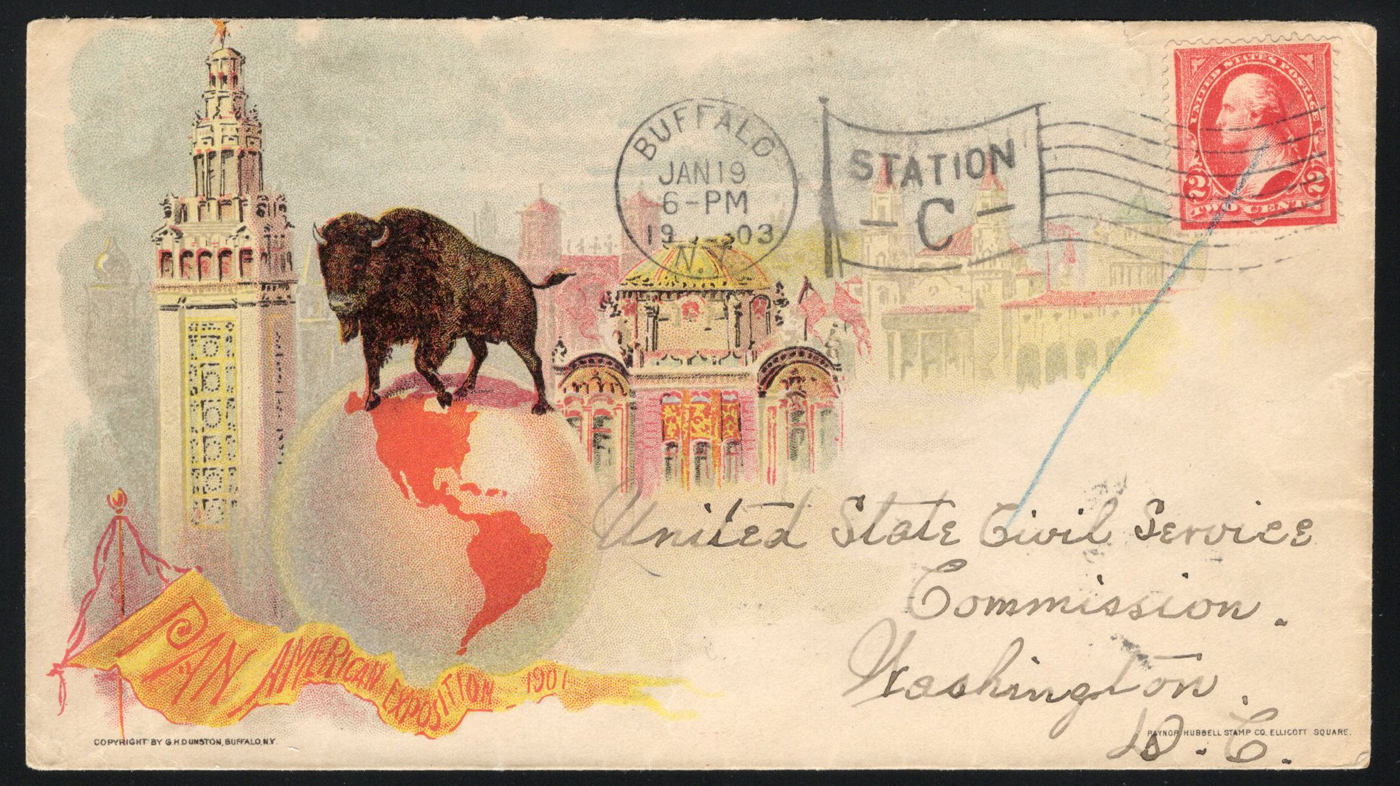 BUFFALO
JAN 19
6-PM
19 03
N.Y.
STATION
C
UNITED STATES POSTAGE
2 2
TWO CENTS
United State Civil Service
Commission.
Washington.
D.C.
PAN AMERICAN EXPOSITION 1901
COPYRIGHT BY G H DUNSTON, BUFFALO, N.Y.
RAYNOR HUBBELL STAMP CO. ELLICOTT SQUARE.